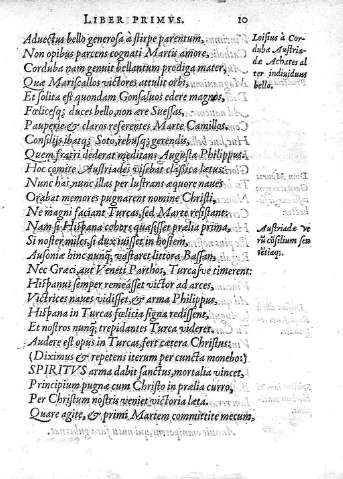 LIBER PRIMVS. 10
Aduectus bello generosa à stirpe parentum,
Non opibus parcens cognati Martis amore,
Corduba nam genuit bellantum prodiga mater,
Quæ Mariscallos victores attulit orbi,
Et solita est quondam Gonsaluos edere magnos,
Fœliceśq; duces bello, non ære Suessas,
Pauperie & claros referentes Marte Camillos.
Consilijs, ibatq; Soto, rebusq; gerendis,
Quem fratri dederat meditans Augusta Philippus.
Hoc comite Austriades visebat classica lætus:
Nunc has, nunc illas perlustrans æquore naues
Orabat memores pugnarent nomine Christi,
Ne magni faciant Turcas, sed Marte resistant:
Nam si Hispana cohors quæsisset prælia prima,
Si noster miles, si dux iuisset in hostem,
Ausoniæ hinc nunq; vastaret littora Bassan,
Nec Græci, aut Veneti Parthos, Turcasve timerent:
Hispanus semper remeasset victor ad arces,
Victrices naues vidisset, & arma Philippus,
Hispana in Turcas fœlicia signa redissent,
Et nostros nunq; trepidantes Turca videret.
Audere est opus in Turcas, fert cætera Christus:
(Diximus & repetens iterum per cuncta monebo:)
SPIRITVS arma dabit sanctus, mortalia vincet,
Principium pugnæ cum Christo in prælia curro,
Per Christum nostris veniet victoria læta.
Quare agite, & primi Martem committite mecum,
Loisius à Corduba Austriadæ Achates alter indiuiduus bello.
Austriadæ verũ cõsilium sententiaq;.